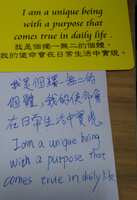 I am a unique being
with a purpose that
comes true in daily life.
我是個獨一無二的個體,
我的使命會在日常生活中實現。
我是個獨一無二的
個體,我的使命會
在日常生活中實現
I am a unique being
with a purpose that
comes true in daily life